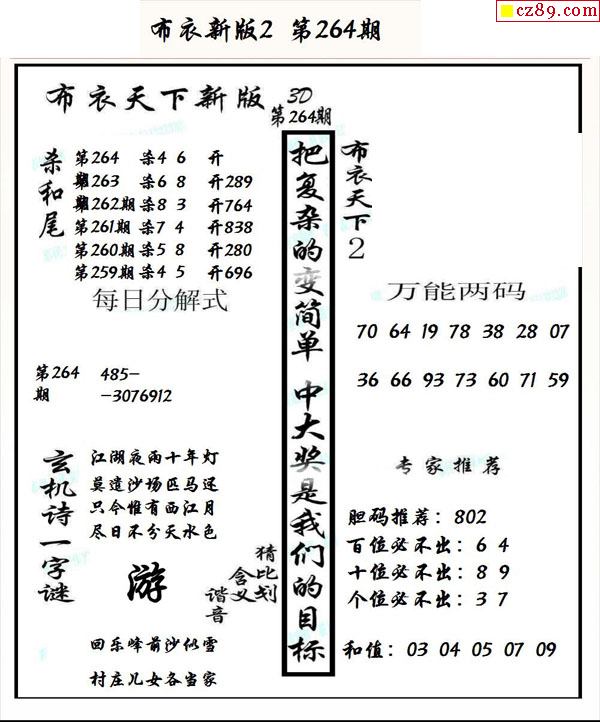 cz89.com
布衣新版2 第264期
布衣天下新版 3D
第264期
杀和尾
第264 杀4 6 开
期263 杀6 8 开289
期262期杀8 3 开764
第261期杀7 4 开838
第260期杀5 8 开280
第259期杀4 5 开696
每日分解式
第264 485-
期 -3076912
玄机诗一字谜
江湖夜雨十年灯
莫遣沙场匹马还
只今惟有西江月
尽日不分天水色
游
猜比划
含义
谐音
回乐峰前沙似雪
村庄儿女各当家
把复杂的变简单 中大奖是我们的目标
布衣天下2
万能两码
70 64 19 78 38 28 07
36 66 93 73 60 71 59
专家推荐
胆码推荐：802
百位必不出：6 4
十位必不出：8 9
个位必不出：3 7
和值：03 04 05 07 09